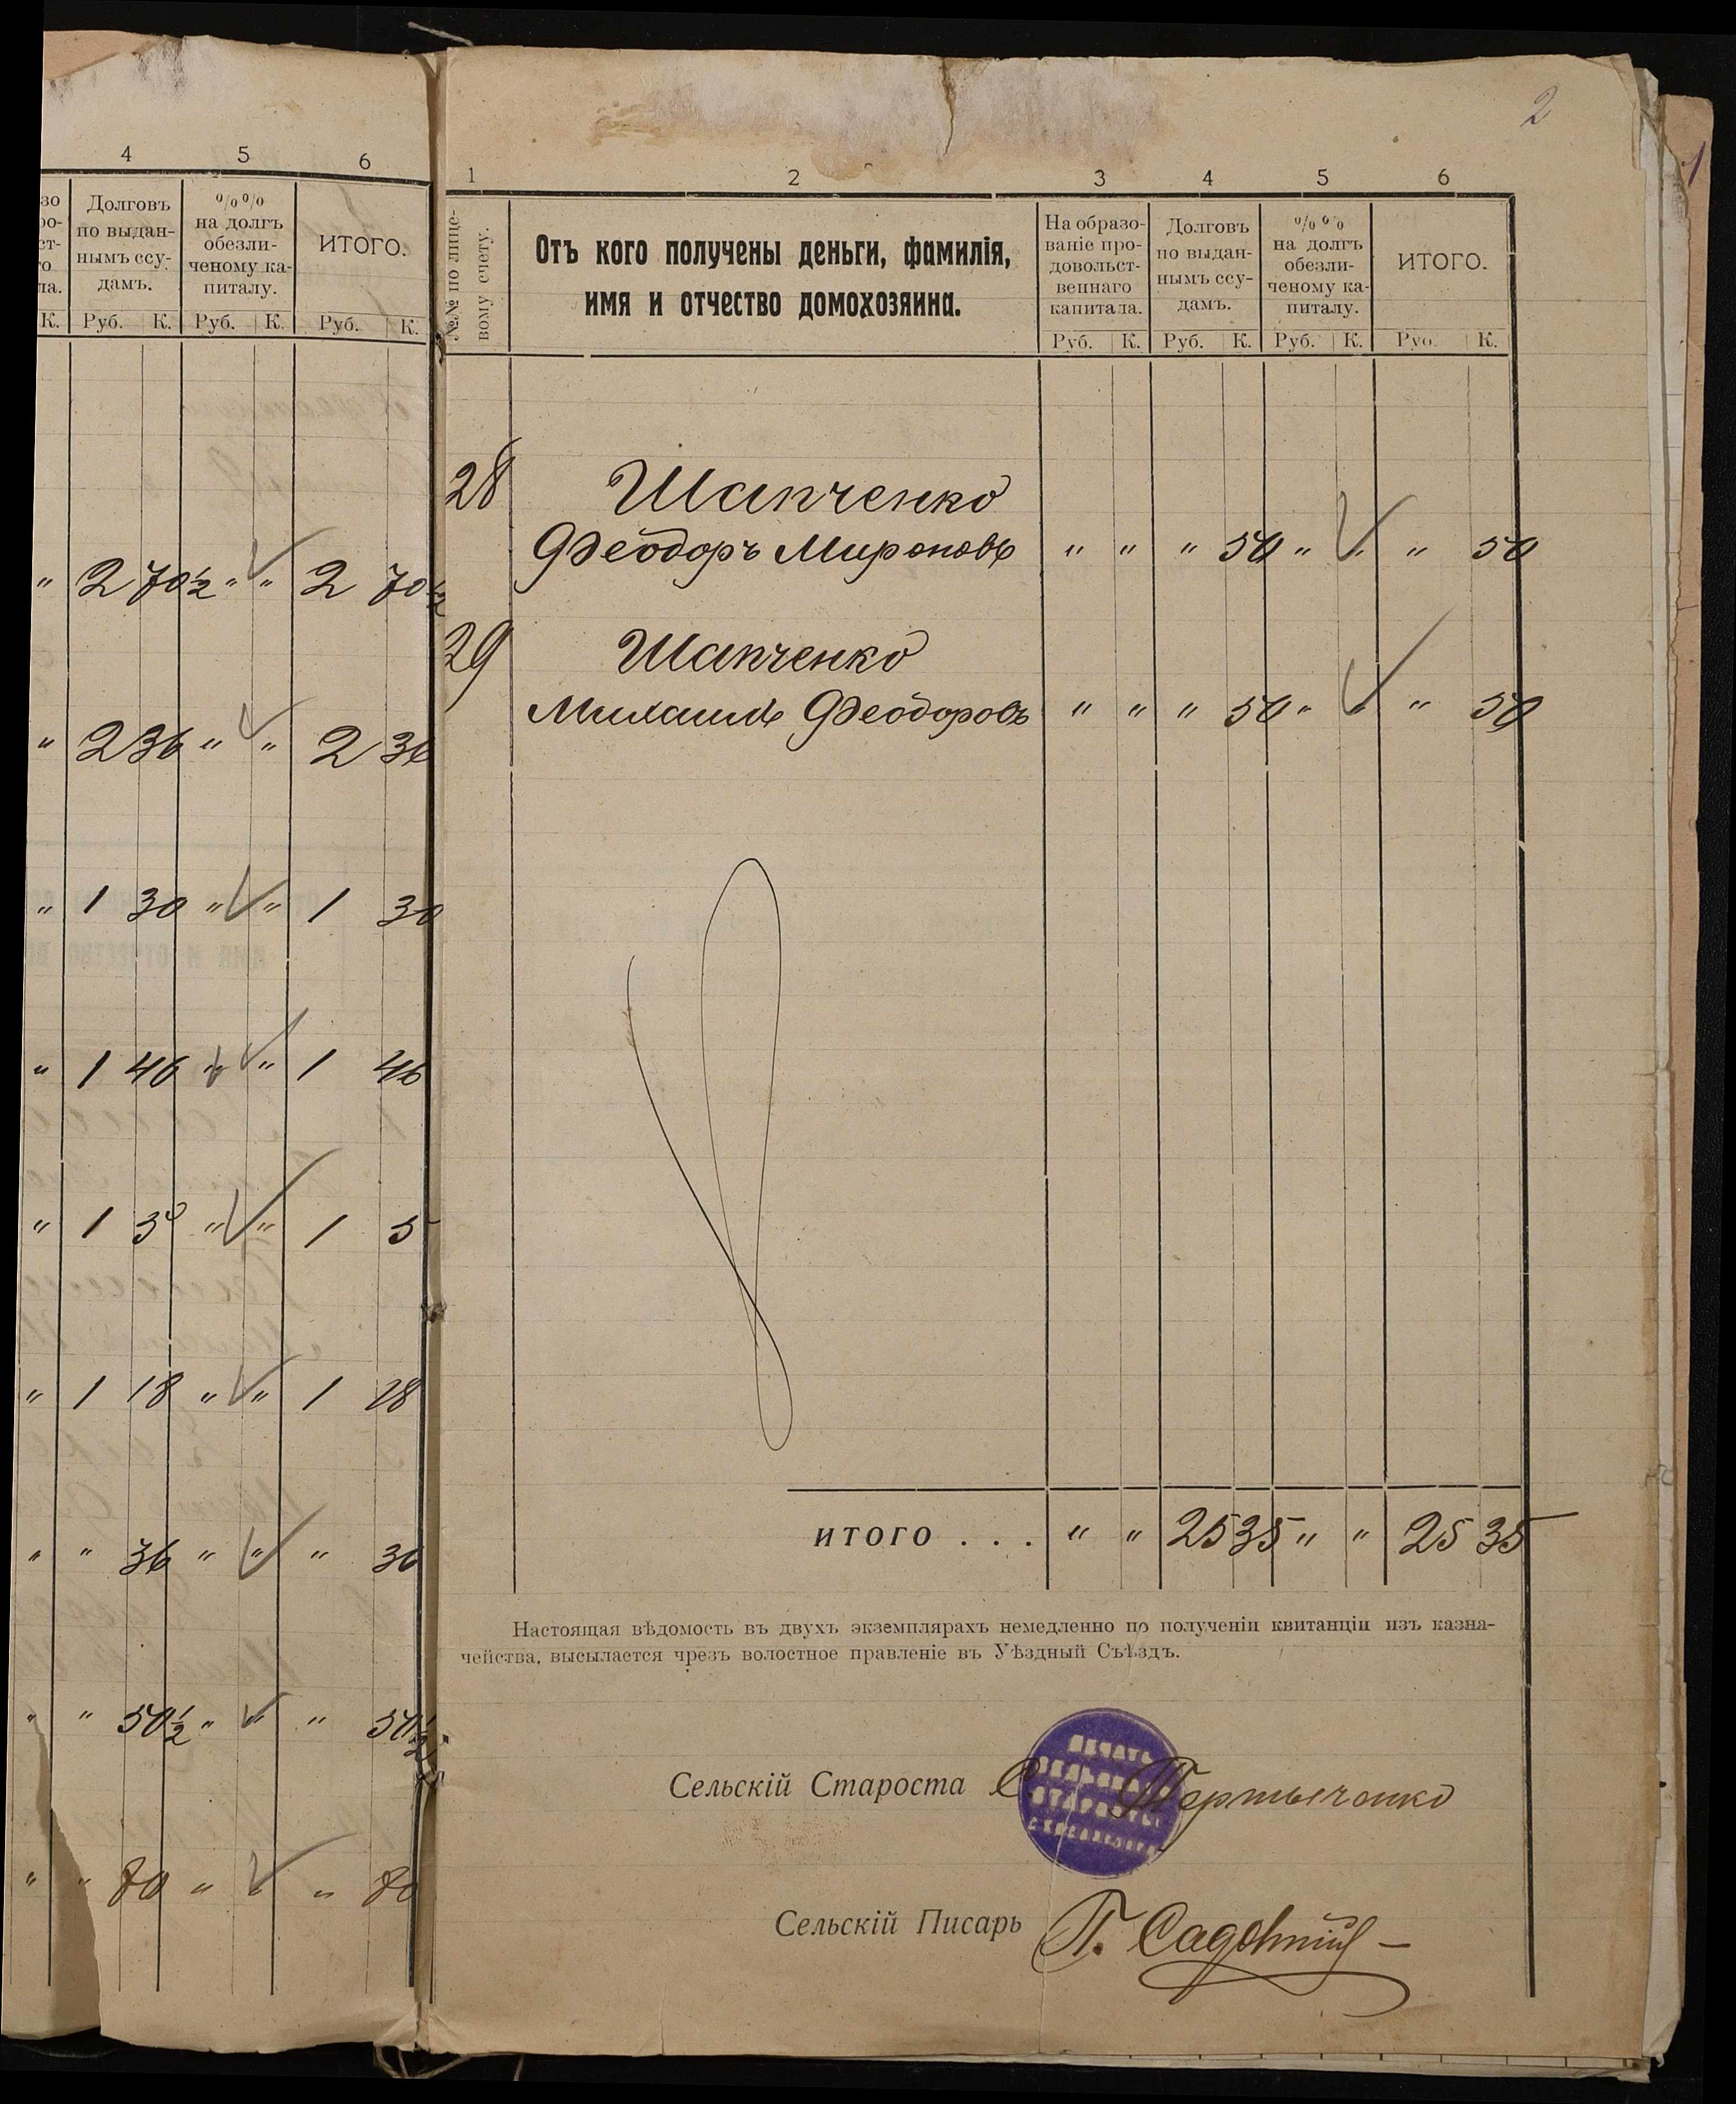 4 5 6
Долговъ по выдан- нымъ ссу- дамъ.
% %
на долгъ обезли- ченому ка- питалу.
ИТОГО.
К. Руб. К. Руб. К. Руб. К.
" 2 70½ " " 2 70½
" 2 36 " " 2 36
" 1 30 " " 1 30
" 1 46 " " 1 46
" 1 5 " " 1 5
" 1 18 " " 1 18
" " 36 " " " 36
" " 50½ " " " 50½
" " 80 " " " 80
2
1
1 2 3 4 5 6
№№ по лице-
вому счету.
Отъ кого получены деньги, фамилія,
имя и отчество домохозяина.
На образо-
ваніе про-
довольст-
веннаго
капитала.
Долговъ
по выдан-
нымъ ссу-
дамъ.
% %
на долгъ
обезли-
ченому ка-
питалу.
ИТОГО.
Руб. К. Руб. К. Руб. К. Руб. К.
28 Шапченко
Феодоръ Мироновъ " " " 50 " " " 50
29 Шапченко
Михаилъ Феодоровъ " " " 50 " " " 50
ИТОГО . . . " " 25 35 " " 25 35
Настоящая вѣдомость въ двухъ экземплярахъ немедленно по полученіи квитанціи изъ казна-
чейства, высылается чрезъ волостное правленіе въ Уѣздный Съѣздъ.
Сельскій Староста
ПЕЧАТЬ
СЕЛЬСКАГО
СТАРОСТЫ
Сельскій Писарь П.